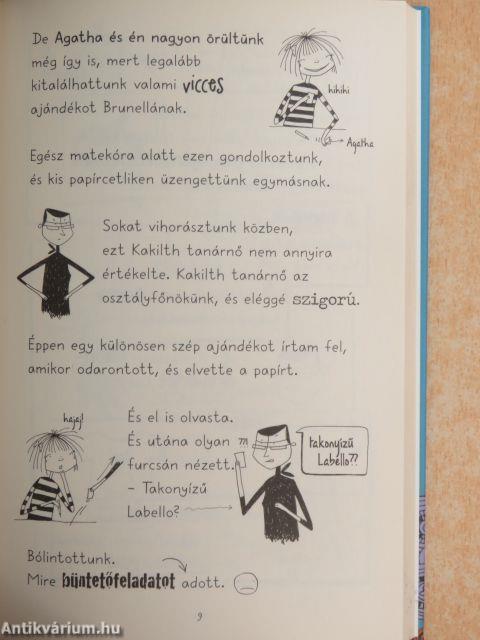 De Agatha és én nagyon örültünk
még így is, mert legalább
kitalálhattunk valami vicces
ajándékot Brunellának.
hihihi
Agatha
Egész matekóra alatt ezen gondolkoztunk,
és kis papírcetliken üzengettünk egymásnak.
Sokat vihorásztunk közben,
ezt Kakilth tanárnő nem annyira
értékelte. Kakilth tanárnő az
osztályfőnökünk, és eléggé szigorú.
Éppen egy különösen szép ajándékot írtam fel,
amikor odarontott, és elvette a papírt.
hajaj!
És el is olvasta.
És utána olyan
furcsán nézett.
– Takonyízű
Labello?
takonyízű
Labello??
Bólintottunk.
Mire büntetőfeladatot adott.
9
Antikvárium.hu